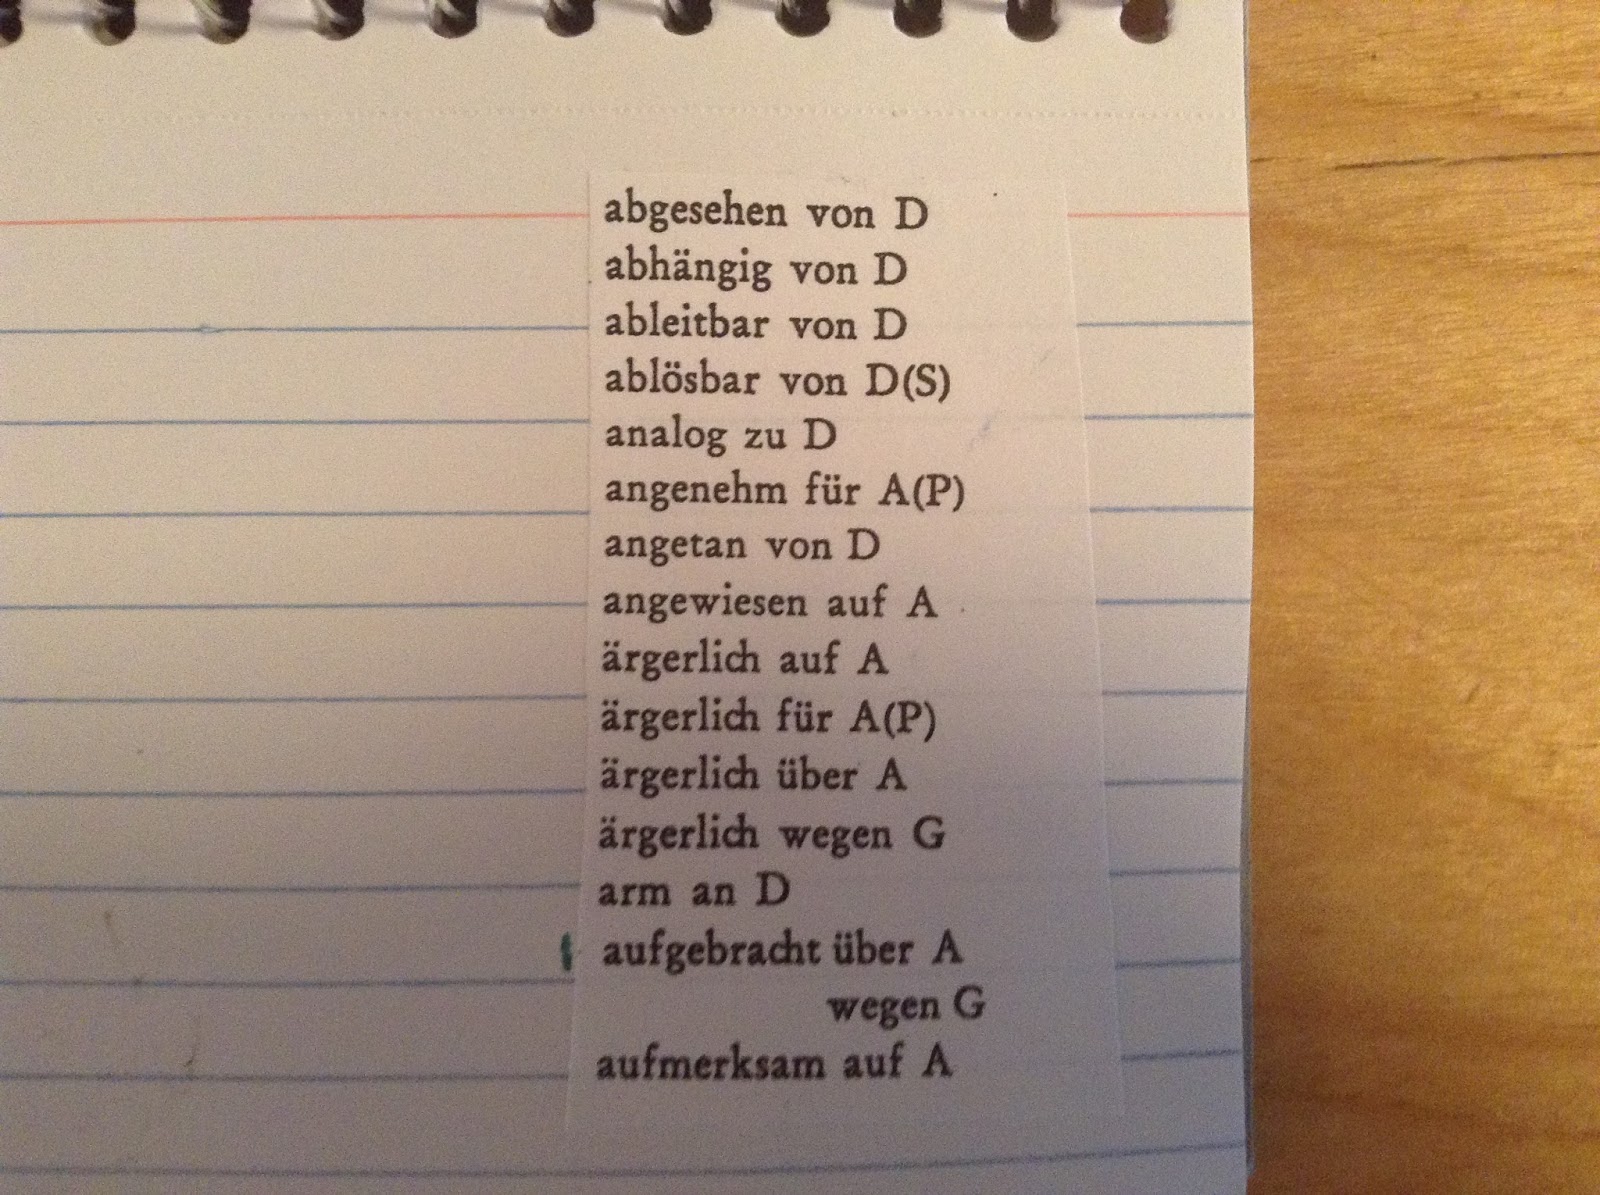 abgesehen von D
abhängig von D
ableitbar von D
ablösbar von D(S)
analog zu D
angenehm für A(P)
angetan von D
angewiesen auf A
ärgerlich auf A
ärgerlich für A(P)
ärgerlich über A
ärgerlich wegen G
arm an D
aufgebracht über A
wegen G
aufmerksam auf A